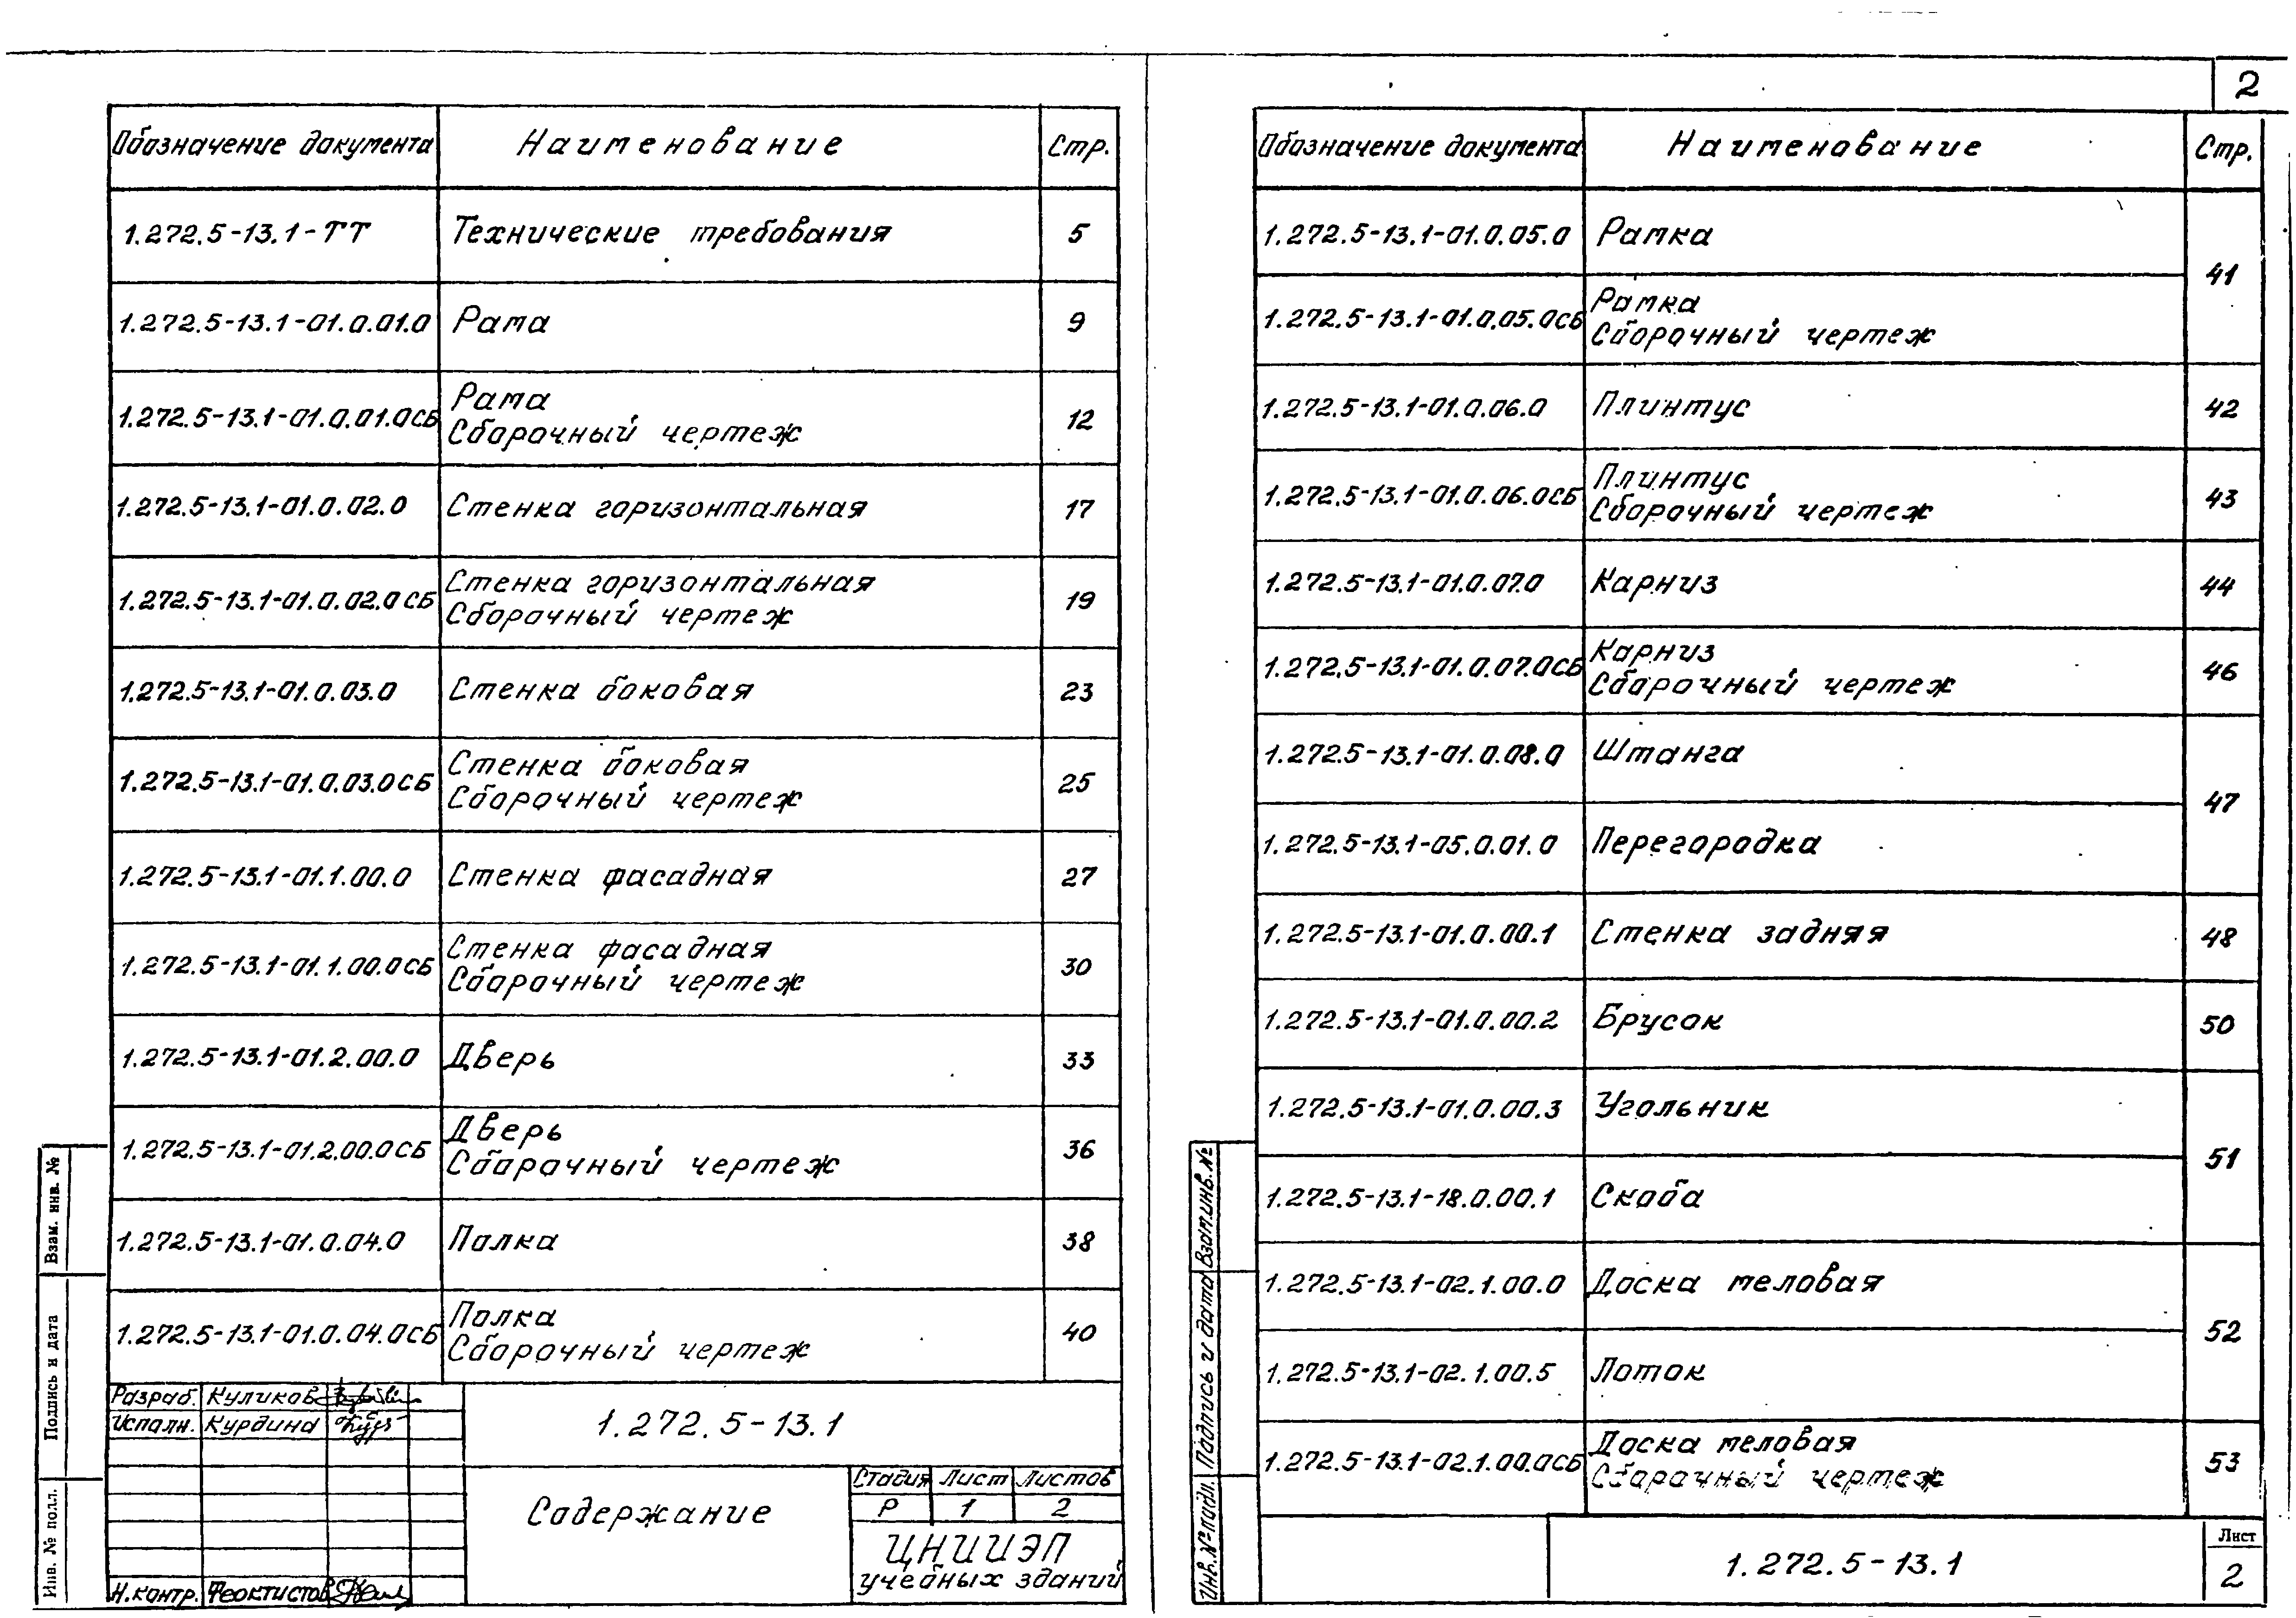 2
Обозначение документа Наименование Стр.
1.272.5-13.1-ТТ Технические требования 5
1.272.5-13.1-01.0.01.0 Рама 9
1.272.5-13.1-01.0.01.0СБ Рама
Сборочный чертеж 12
1.272.5-13.1-01.0.02.0 Стенка горизонтальная 17
1.272.5-13.1-01.0.02.0СБ Стенка горизонтальная
Сборочный чертеж 19
1.272.5-13.1-01.0.03.0 Стенка боковая 23
1.272.5-13.1-01.0.03.0СБ Стенка боковая
Сборочный чертеж 25
1.272.5-13.1-01.1.00.0 Стенка фасадная 27
1.272.5-13.1-01.1.00.0СБ Стенка фасадная
Сборочный чертеж 30
1.272.5-13.1-01.2.00.0 Дверь 33
1.272.5-13.1-01.2.00.0СБ Дверь
Сборочный чертеж 36
1.272.5-13.1-01.0.04.0 Полка 38
1.272.5-13.1-01.0.04.0СБ Полка
Сборочный чертеж 40
Разраб. Куликов
Исполн. Курдина
Н.контр. Феоктистов
1.272.5-13.1
Содержание
Стадия Лист Листов
Р 1 2
ЦНИИЭП
учебных зданий
Взам. инв. №
Подпись и дата
Инв. № подл.
Обозначение документа Наименование Стр.
1.272.5-13.1-01.0.05.0 Рамка
41
1.272.5-13.1-01.0.05.0СБ Рамка
Сборочный чертеж
1.272.5-13.1-01.0.06.0 Плинтус 42
1.272.5-13.1-01.0.06.0СБ Плинтус
Сборочный чертеж 43
1.272.5-13.1-01.0.07.0 Карниз 44
1.272.5-13.1-01.0.07.0СБ Карниз
Сборочный чертеж 46
1.272.5-13.1-01.0.08.0 Штанга
47
1.272.5-13.1-05.0.01.0 Перегородка
1.272.5-13.1-01.0.00.1 Стенка задняя 48
1.272.5-13.1-01.0.00.2 Брусок 50
1.272.5-13.1-01.0.00.3 Угольник
51
1.272.5-13.1-18.0.00.1 Скоба
1.272.5-13.1-02.1.00.0 Доска меловая
52
1.272.5-13.1-02.1.00.5 Лоток
1.272.5-13.1-02.1.00.0СБ Доска меловая
Сборочный чертеж 53
Взам.инв.№
Подпись и дата
Инв.№подл.
1.272.5-13.1
Лист
2